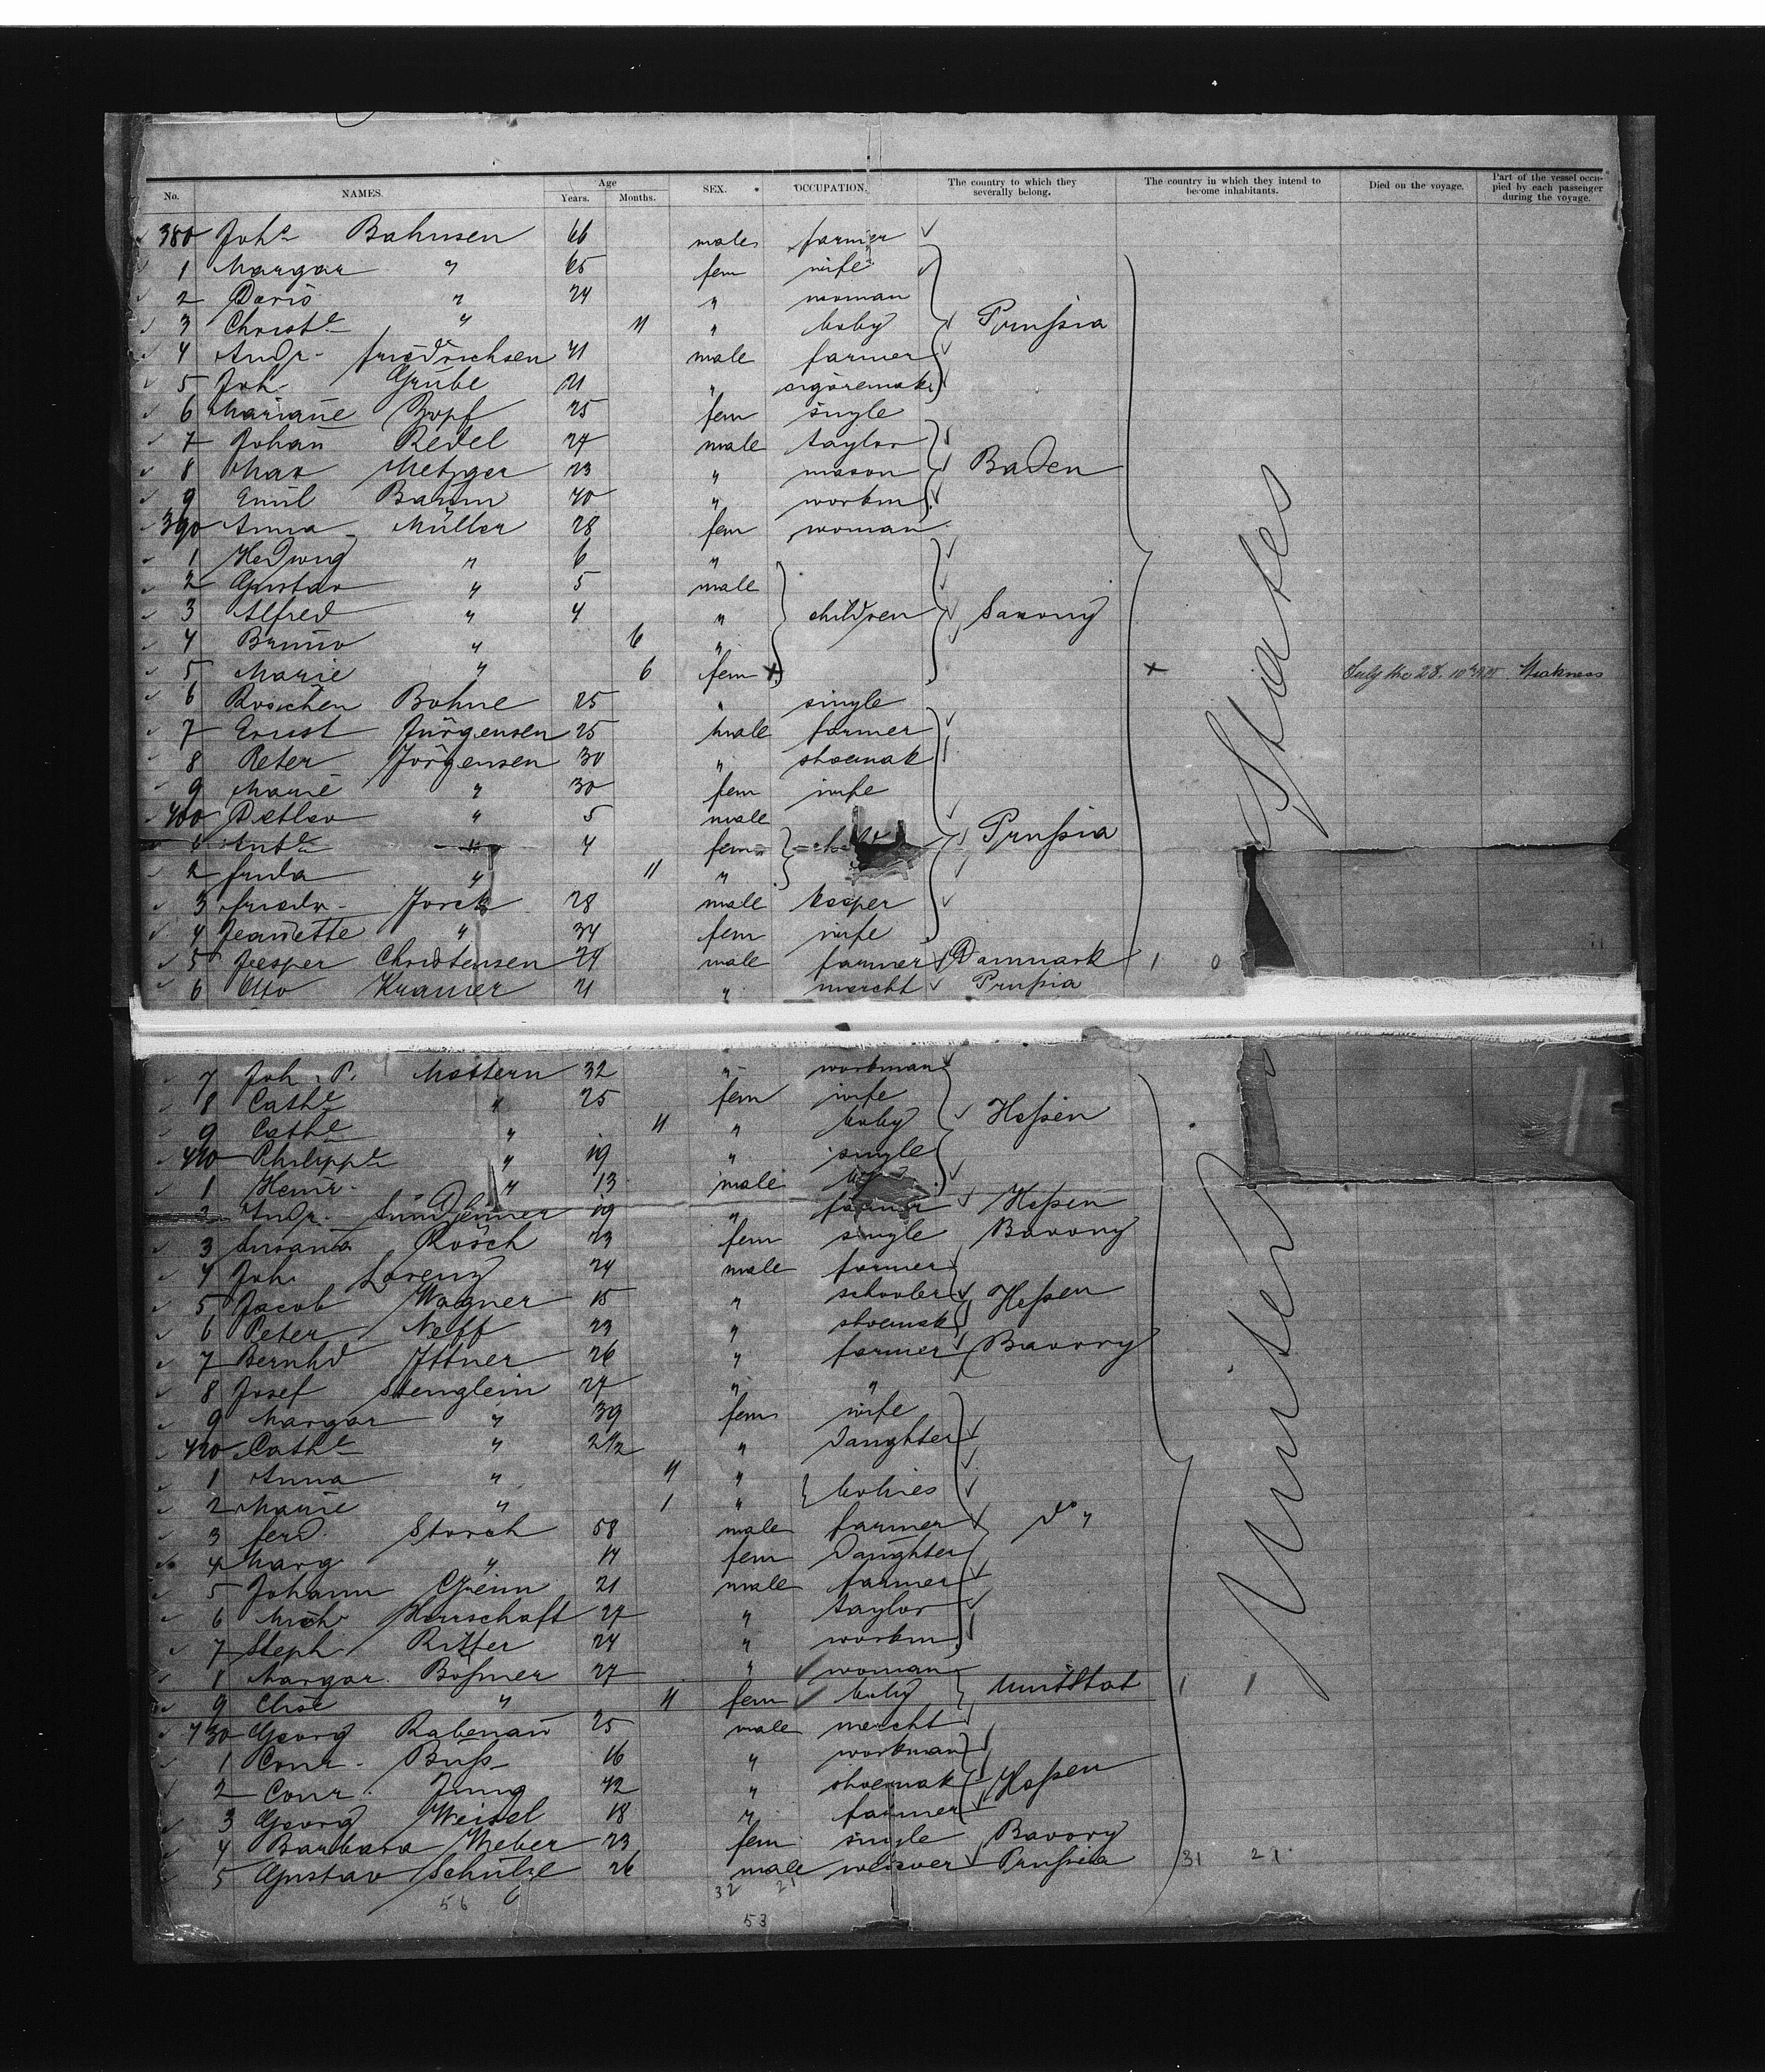 No. NAMES. Age Years. Months. SEX. OCCUPATION. The country to which they severally belong. The country in which they intend to become inhabitants. Died on the voyage. Part of the vessel occupied by each passenger during the voyage.
380 Johs Bahnsen 66 male farmer
1 Margar " 65 fem wife
2 Doris " 24 " woman
3 Christe " 11 " baby Prußia
4 Andr. Friedrichsen 41 male farmer
5 Joh. Grube 21 "
6 Mariane Bopf 25 fem single
7 Johan Redel 27 male taylor
8 Max Metzger 23 " mason Baden
9 Emil Baum 40 " workm
390 Anna Müller 28 fem woman
1 Hedwig " 6 "
2 Gustav " 5 male
3 Alfred " 4 " children Saxony
4 Bruno " 6 "
5 Marie " 6 fem July the 28. Weakness
6 Roschen Bohne 25 " single
7 Ernst Jürgensen 25 male farmer
8 Peter Jörgensen 30 " shoemak
9 Marie " 30 fem wife
400 Detlev " 5 male
1 Ante " 4 fem Prußia
2 Frida " 11 "
3 Friedr. Jorck 28 male
4 Jeanette " 34 fem wife
5 Jesper Christensen 29 male farmer Danmark 1 0
6 Otto Kramer 21 " mercht Prußia
7 Joh. P. Mostern 32 " workman
8 Cathe " 25 fem wife
9 Cathe " 11 " baby Heßen
410 Philippe " 19 " single
1 Henr. " 13 male
2 Andr. 19 " farmer Heßen
3 Susana Rosch 23 fem single Bavory
4 Joh. Lorenz 24 male farmer
5 Jacob Wagner 15 " schooler Heßen
6 Peter Neff 23 " shoemak
7 Bernhd Ittner 26 " farmer Bavory
8 Josef Stenglein 27 " "
9 Margar " 39 fem wife
420 Cathe " 2 1/2 " Daughter
1 Anna " 11 "
2 Marie " 1 " babies
3 Ferd. Storch 58 male farmer do "
4 Marg " 14 fem Daughter
5 Johann Grim 21 male farmer
6 Mich Herrschaft 27 " taylor
7 Steph. Ritter 24 " workm
8 Margar. Boßner 27 " woman
9 Elise " 11 fem baby UnitStat 1 1
430 Georg Rabenau 25 male mercht
1 Conr. Buß 16 " workman
2 Conr. Jung 42 " shoemak Heßen
3 Georg Weisel 18 " farmer
4 Barbara Weber 23 fem single Bavory
5 Gustav Schulze 26 male weaver Prußia 31 21
United States
56 32 21
53